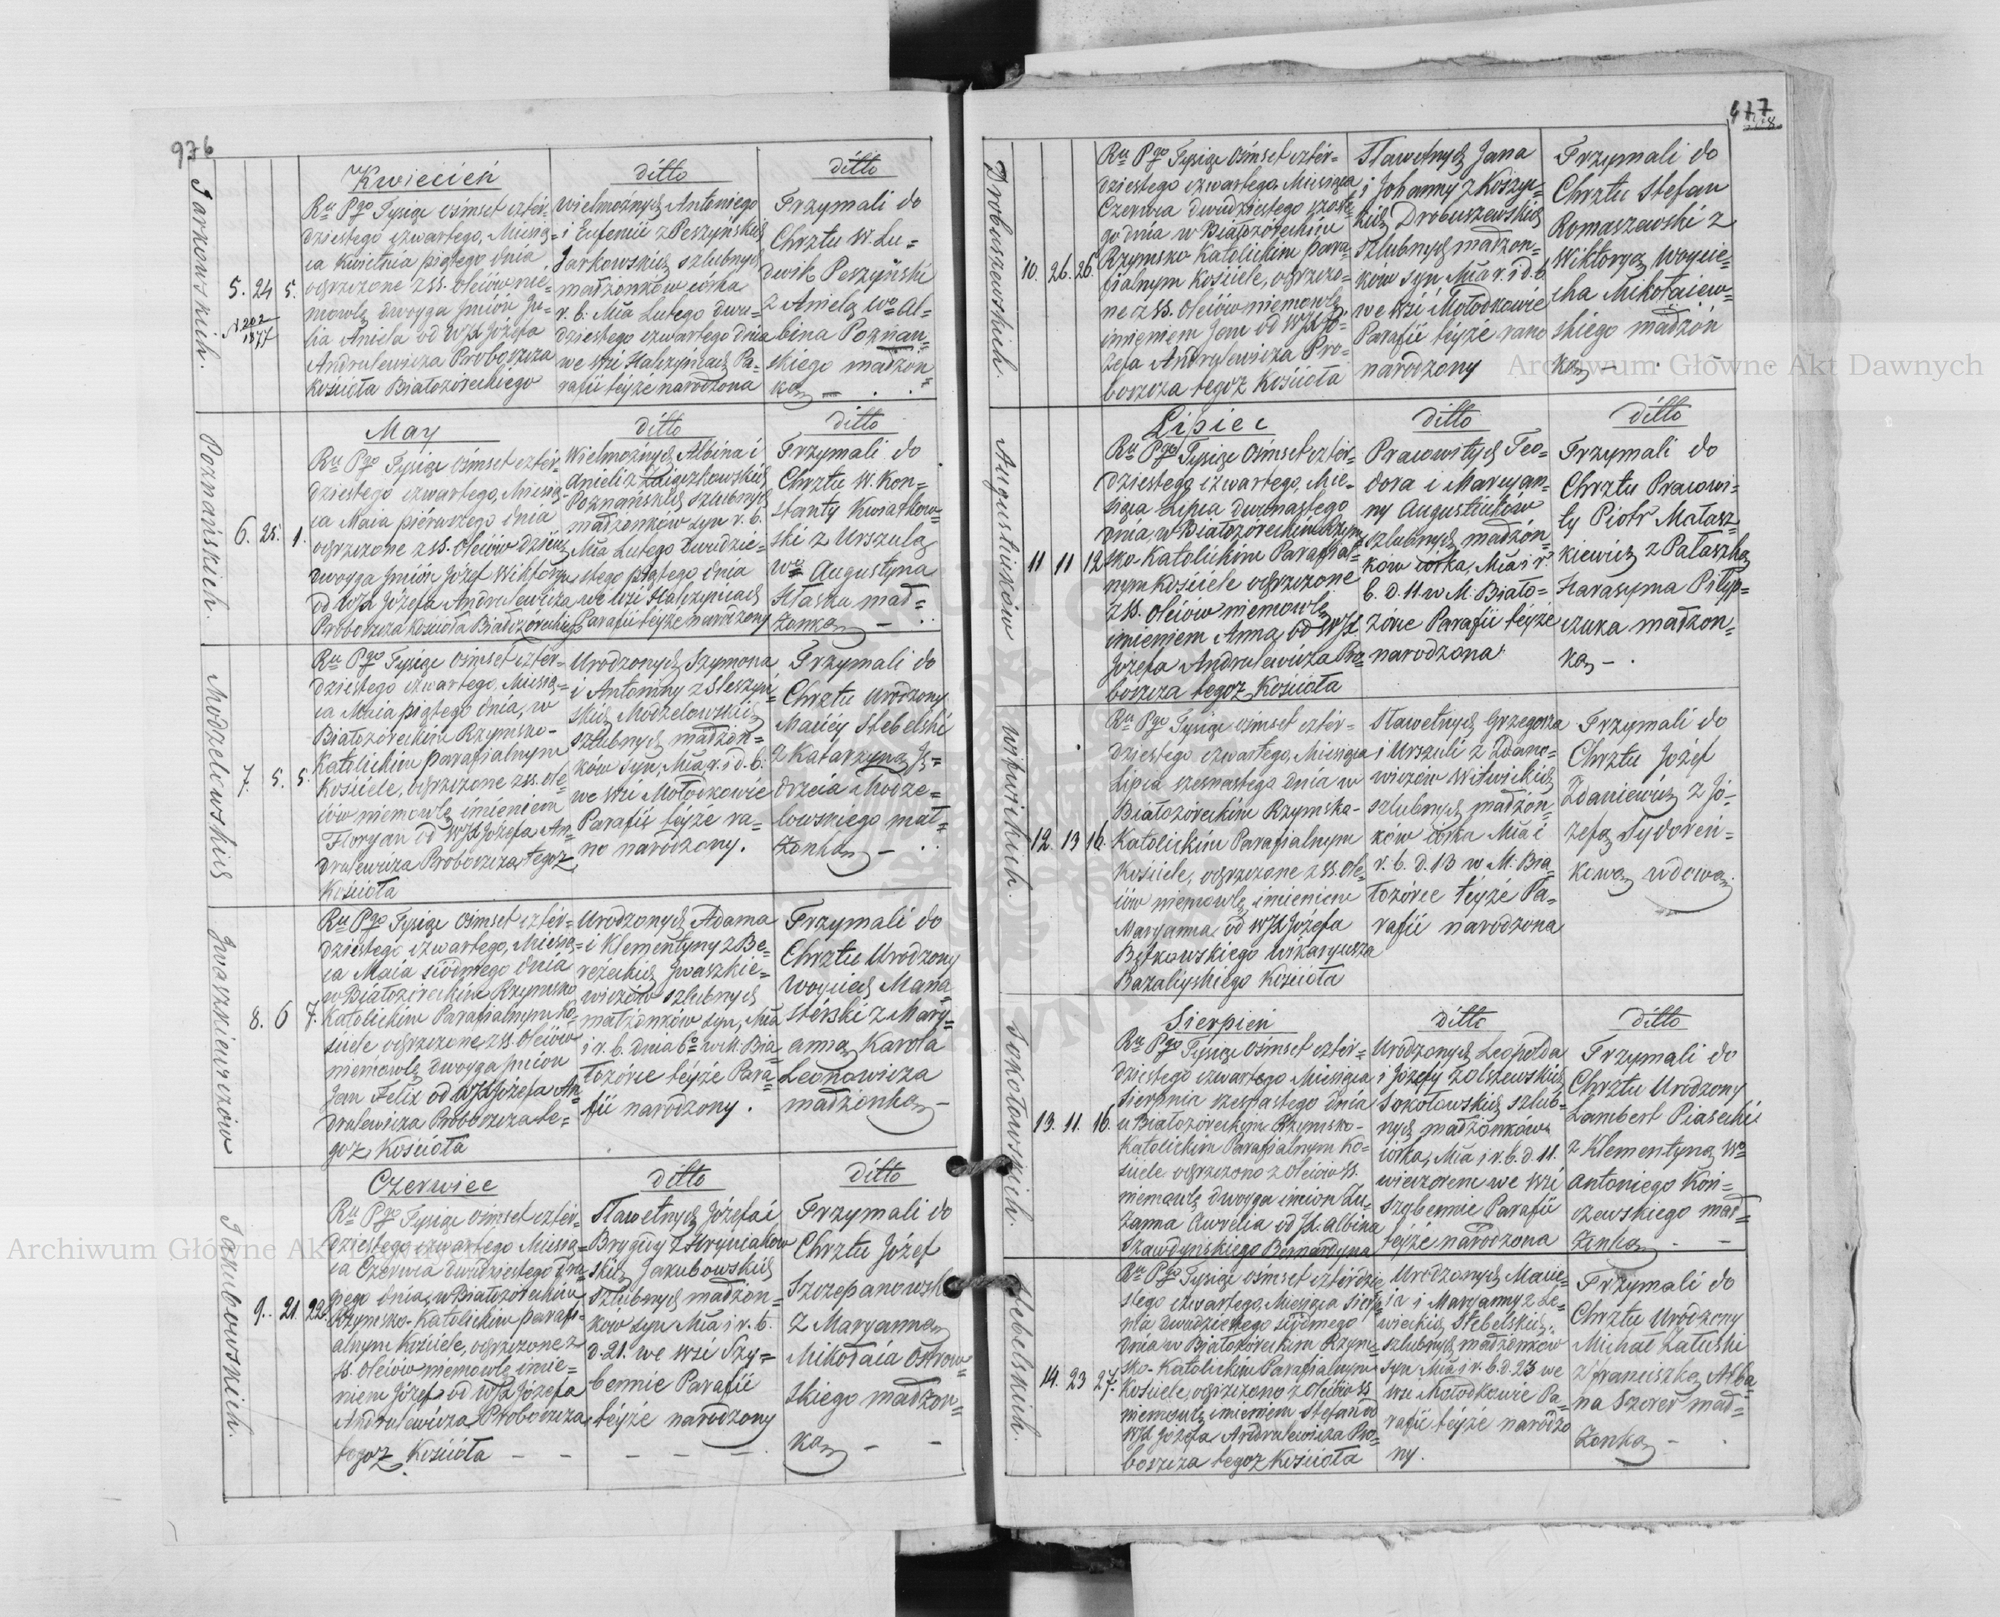 976
Jarkowskich.
5. 24 5.
N 202
1877
Kwiecień
Ru Pgo Tysiąc ośmset czter=
dziestego czwartego, Miesią=
ca kwietnia piątego dnia
ochrzczone z SS. Olejów nie=
mowlę dwojga Imion Ju=
lia Aniela od WJX Józefa
Andrulewicza Proboszcza
kościoła Białozóreckiego
ditto
Wielmożnych Antoniego
i Eufemii z Peszyńskich
Jarkowskich szlubnych
małżonków córka
r. b. Mca Lutego dwu=
dziestego czwartego dnia
we wsi Halczyńcach Pa=
rafii tejże narodzona
ditto
Trzymali do
Chrztu W. Lu=
dwik Peszyński
z Anielą Wo Al=
bina Poznań=
skiego małżon
ką —
Poznańskich.
6. 25. 1.
May
Ru Pgo Tysiąc ośmset czter=
dziestego czwartego, Miesią=
ca Maia pierwszego dnia
ochrzczone z SS. Olejów dziecię
dwojga Imion Józef Wiktoryn
od WJX Józefa Andrulewicza
Proboszcza Kościoła Białozóreckiego
ditto
Wielmożnych Albina i
Anieli z
Poznańskich szlubnych
małżonków syn r. b.
Mca Lutego dwudzie=
stego piątego dnia
we wsi Halczyńcach
Parafii tejże narodzony
ditto
Trzymali do
Chrztu W. Kon=
stanty Kwiatkow=
ski z Urszulą
Wo Augustyna
Hłasku mał=
żonką —
Modzelewskich
7. 5. 5.
Ru Pgo Tysiąc ośmset czter=
dziestego czwartego, Miesią=
ca Maia piątego dnia, w
Białozóreckim Rzymsko-
Katolickim parafialnym
Kościele, ochrzczone z SS. Ole=
jów niemowlę imieniem
Floryan od WJX Józefa An=
drulewicza Proboszcza tegoż
Kościoła
Urodzonych Szymona
i Antoniny z Sleszyń=
skich Modzelowskich
szlubnych małżon=
ków syn, Mca r. i d. b.
we wsi Mołodkowie
Parafii tejże ra=
no narodzony.
Trzymali do
Chrztu Urodzony
Maciej Stebelski
z Katarzyną Ję=
drzeia Modze=
lowskiego mał=
żonką —
Jwaszkiewiczów
8. 6 7.
Ru Pgo Tysiąc ośmset czter=
dziestego czwartego, Miesią=
ca Maia siódmego dnia
w Białozóreckim Rzymsko
Katolickim Parafialnym Ko=
ściele ochrzczone z SS. Olejów
niemowlę dwojga Imion
Jan Felix od WJX Józefa An=
drulewicza Proboszcza te=
goż Kościoła
Urodzonych Adama
i Klementyny z Be=
reżeckich Jwaszkie=
wiczów szlubnych
małżonków syn, Mca
i r. b. dnia 6o w M. Bia=
łozórce tejże Para=
fii narodzony.
Trzymali do
Chrztu Urodzony
Woyciech Mana
sterski z Mary=
anną Karola
Leonowicza
małżonką —
Jakubowskich.
9. 21. 22.
Czerwiec
Ru Pgo Tysiąc ośmset czter=
dziestego czwartego Miesią=
ca Czerwca dwudziestego dru=
giego dnia, w Białozóreckim
Rzymsko-Katolickim parafi=
alnym Kościele, ochrzczone z
SS. Olejów niemowlę imie=
niem Józef od WJX Józefa
Andrulewicza Proboszcza
tegoż Kościoła — —
ditto
Sławetnych Józefa i
Brygidy z Hryniakow
skich Jakubowskich
szlubnych małżon=
kow syn Mca i r. b.
d. 21. we wsi Szy=
bennie Parafii
tejże narodzony
— — —
ditto
Trzymali do
Chrztu Józef
Szczepanowski
z Maryanną
Mikołaia Ostrow=
skiego małżon=
ką — —
977
Drobuszewskich
10. 26. 26.
Ru Pgo Tysiąc ośmset czter=
dziestego czwartego, Miesiąca
Czerwca dwudziestego szóste=
go dnia w Białozóreckim
Rzymsko Katolickim para=
fialnym Kościele, ochrzczo=
ne z SS. Olejów niemowlę
imieniem Jan od WJX Jó=
zefa Andrulewicza Pro=
boszcza tegoż Kościoła
Sławetnych Jana
i Johanny z Koszyc=
kich Drobuszewskich
szlubnych małżon=
kow syn Mca r. i d. b.
we wsi Mołodkowie
Parafii tejże rano
narodzony
Trzymali do
Chrztu Stefan
Romaszewski z
Wiktoryą Woycie=
cha Mikołaiew=
skiego małżon
ką —
Augustinków
11 11 12
Lipiec
Ru Pgo Tysiąc ośmset czter=
dziestego czwartego, Mie=
siąca Lipca dwunastego
dnia w Białozóreckim Rzym=
sko-Katolickim Parafial=
nym kościele ochrzczone
z SS. Olejów niemowlę
imieniem Anna od WJX
Józefa Andrulewicza Pro=
boszcza tegoż Kościoła
ditto
Pracowitych Teo=
dora i Maryan=
ny Augustinków
szlubnych małżon=
ków córka, Mca i r.
b. d. 11 w M. Biało=
zórce Parafii tejże
narodzona
ditto
Trzymali do
Chrztu Pracowi=
ty Piotr Matasz=
kiewicz z Pałaszką
Harasyma Pilyp=
czuka małżon=
ką —
Witwickich.
12. 13 16.
Ru Pgo Tysiąc ośmset czter=
dziestego czwartego, Miesiąca
Lipca szesnastego dnia w
Białozóreckim Rzymsko-
Katolickim Parafialnym
Kościele, ochrzczone z SS. Ole=
jów niemowlę imieniem
Maryanna od WJX Józefa
Bętkowskiego Wikaryusza
Bazaliyskiego Kościoła
Sławetnych Grzegorza
i Urszuli z Zdano=
wiczów Witwickich
szlubnych małżon=
ków córka Mca i
r. b. d. 13 w M. Bia=
łozórce tejże Pa=
rafii narodzona
Trzymali do
Chrztu Jozef
Zdaniewicz z Jó=
zefą Sydoreń=
kową wdową.
Sokołowskich.
13. 11. 16.
Sierpień
Ru Pgo Tysiąc ośmset czter=
dziestego czwartego Miesiąca
Sierpnia szesnastego dnia
w Białozóreckim Rzymsko-
Katolickim Parafialnym Ko=
ściele ochrzczono z olejów SS.
niemowlę dwojga imion Zu=
zanna Aurelia od JX. Albina
Szawdyńskiego Bernardyna
ditto
Urodzonych Leopolda
i Józefy z Olszewskich
Sokołowskich szlub=
nych małżonków
córka, Mca i r. b. d. 11.
wieczorem we wsi
Szybennie Parafii
tejże narodzona
ditto
Trzymali do
Chrztu Urodzony
Lambert Piasecki
z Klementyną Wo
Antoniego Kon=
czewskiego mał=
żonką —
Stebelskich.
14. 23 27.
Ru Pgo Tysiąc ośmset czterdzie
stego czwartego, Miesiąca Sierp=
nia dwudziestego siódmego
dnia w Białozóreckim Rzym=
sko-Katolickim Parafialnym
Kościele, ochrzczono z Olejów SS
niemowlę imieniem Stefan od
WJX Józefa Andrulewicza Pro=
boszcza tegoż Kościoła
Urodzonych Macie=
ja i Maryanny z Le=
wickich Stebelskich
szlubnych małżonków
syn Mca i r. b. d. 23 we
wsi Mołodkowie Pa=
rafii tejże narodzo
ny.
Trzymali do
Chrztu Urodzony
Michał Załuski
z Franciszką Alba=
na Szerer mał=
żonką —
Archiwum Główne Akt Dawnych